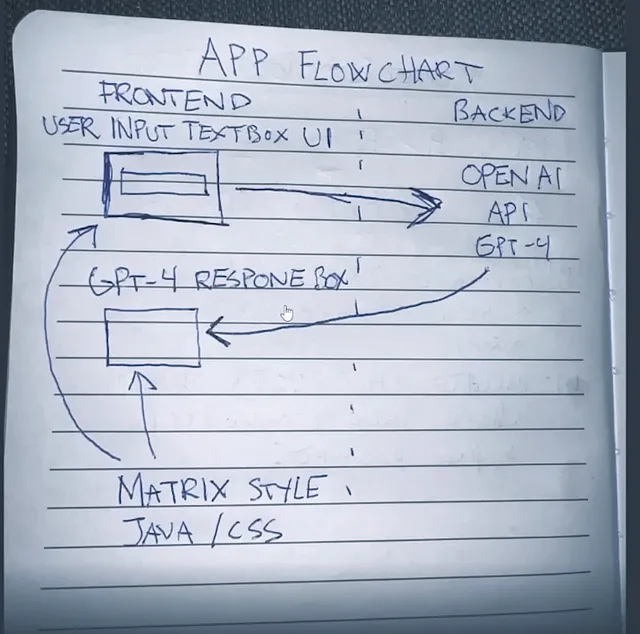 APP FLOWCHART
FRONTEND
BACKEND
USER INPUT TEXTBOX UI
OPEN AI
API
GPT-4
GPT-4 RESPONE BOX
MATRIX STYLE
JAVA / CSS